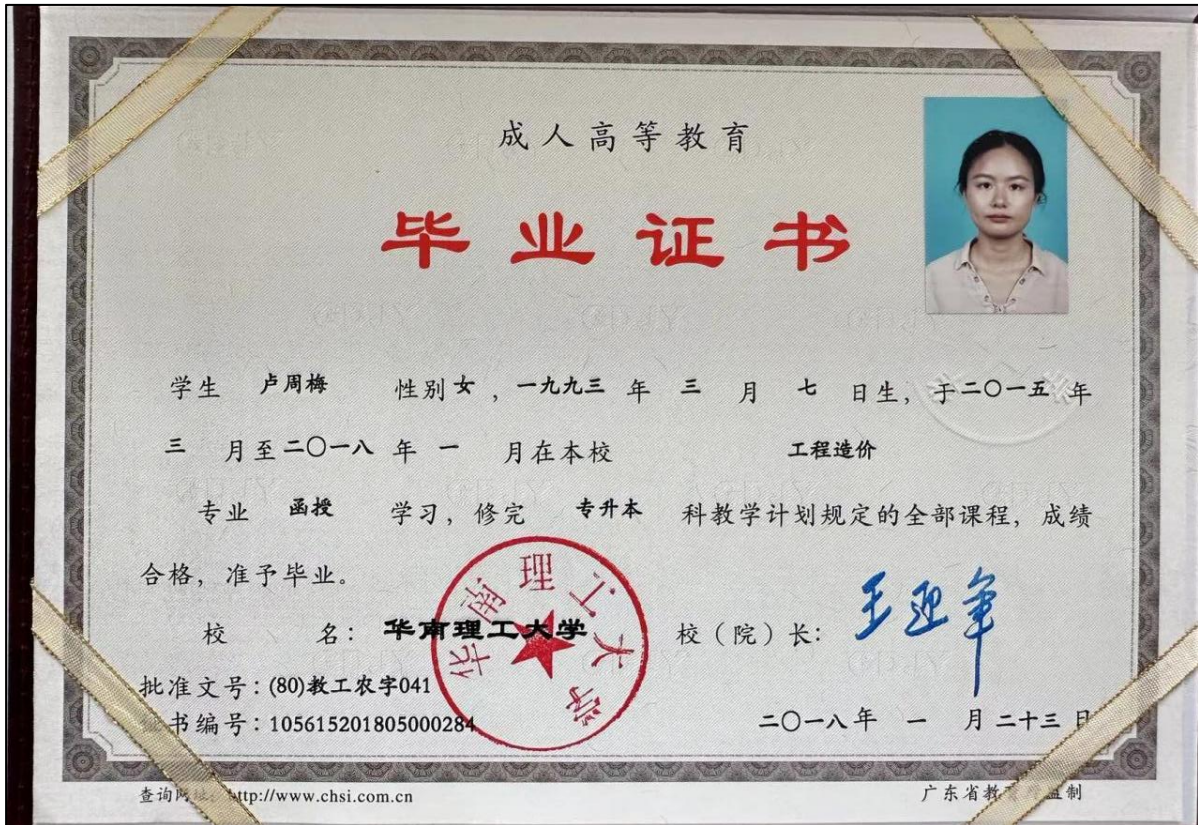 成人高等教育
毕业证书
学生 卢周梅 性别 女 , 一九九三 年 三 月 七 日生, 于二〇一五 年
三 月至二〇一八 年 一 月在本校 工程造价
专业 函授 学习, 修完 专升本 科教学计划规定的全部课程, 成绩
合格, 准予毕业。
校 名: 华南理工大学 校(院)长: 王迎军
华南理工大学
批准文号: (80)教工农字041
书编号: 105615201805000284 二〇一八年 一 月二十三日
查询网 http://www.chsi.com.cn 广东省教 监制